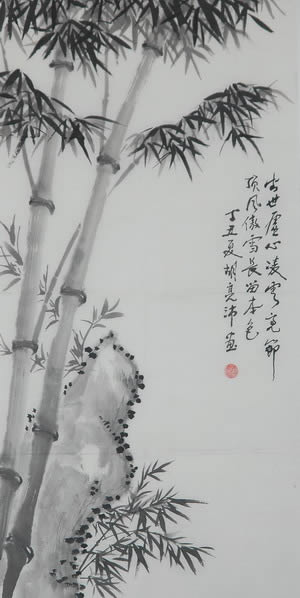 出世虚心凌雲亮節
頂風傲雪長留本色
丁丑夏胡亮沛畫